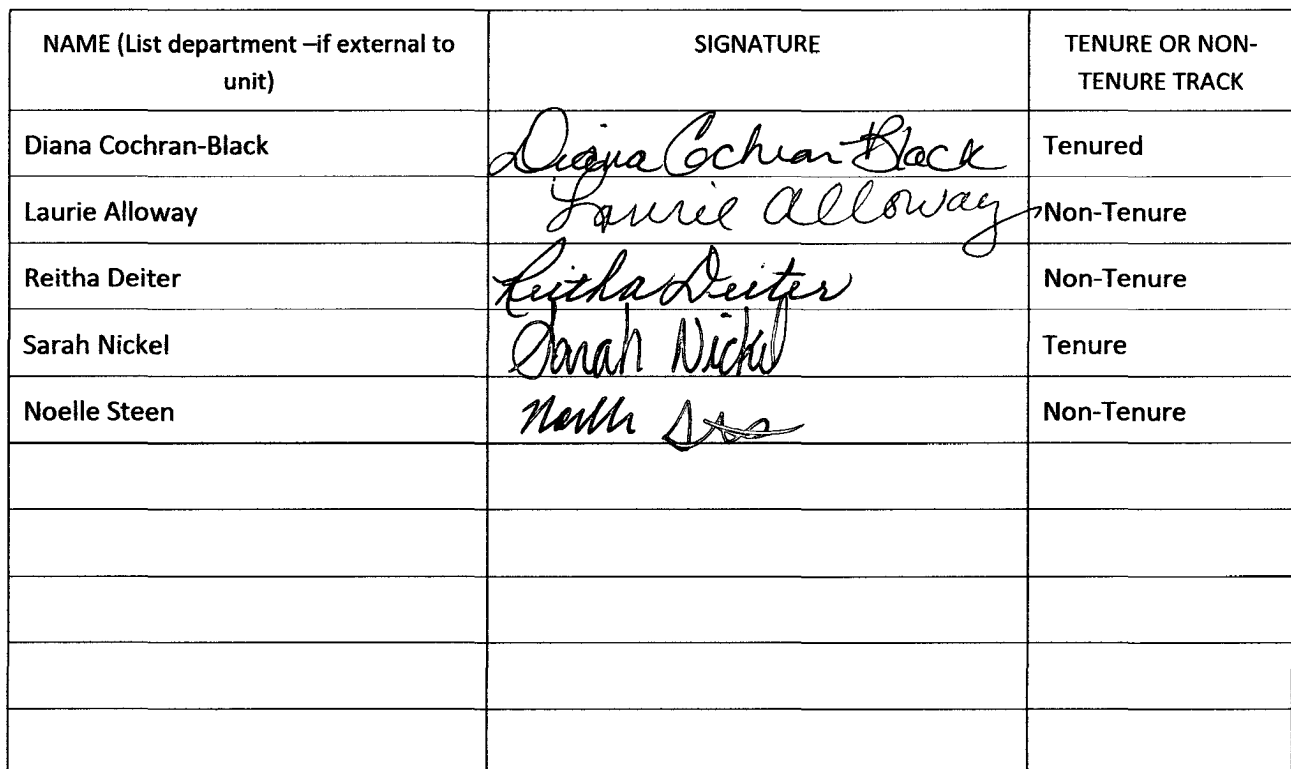 NAME (List department –if external to
unit)
SIGNATURE
TENURE OR NON-
TENURE TRACK
Diana Cochran-Black
Diana Cochran-Black
Tenured
Laurie Alloway
Laurie Alloway
Non-Tenure
Reitha Deiter
Reitha Deiter
Non-Tenure
Sarah Nickel
Sarah Nickel
Tenure
Noelle Steen
Non-Tenure